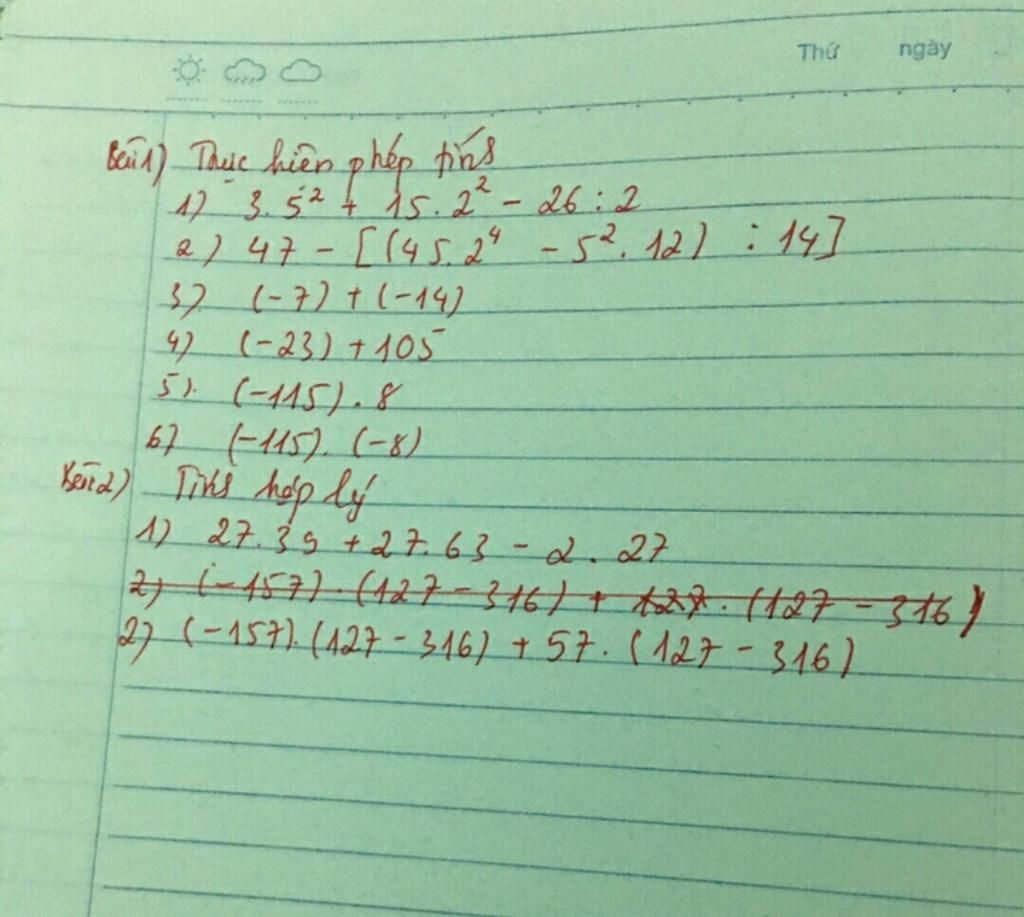 Thứ ngày
Bài 1) Thực hiện phép tính
1) 3.5² + 15.2² - 26 : 2
2) 47 - [(45.2⁴ - 5².12) : 14]
3) (-7) + (-14)
4) (-23) + 105
5). (-115). 8
6) (-115). (-8)
Bài 2) Tính hợp lý
1) 27.39 + 27.63 - 2. 27
2) (-157).(127 - 316) + 127.(127 - 316)
2) (-157).(127 - 316) + 57. (127 - 316)